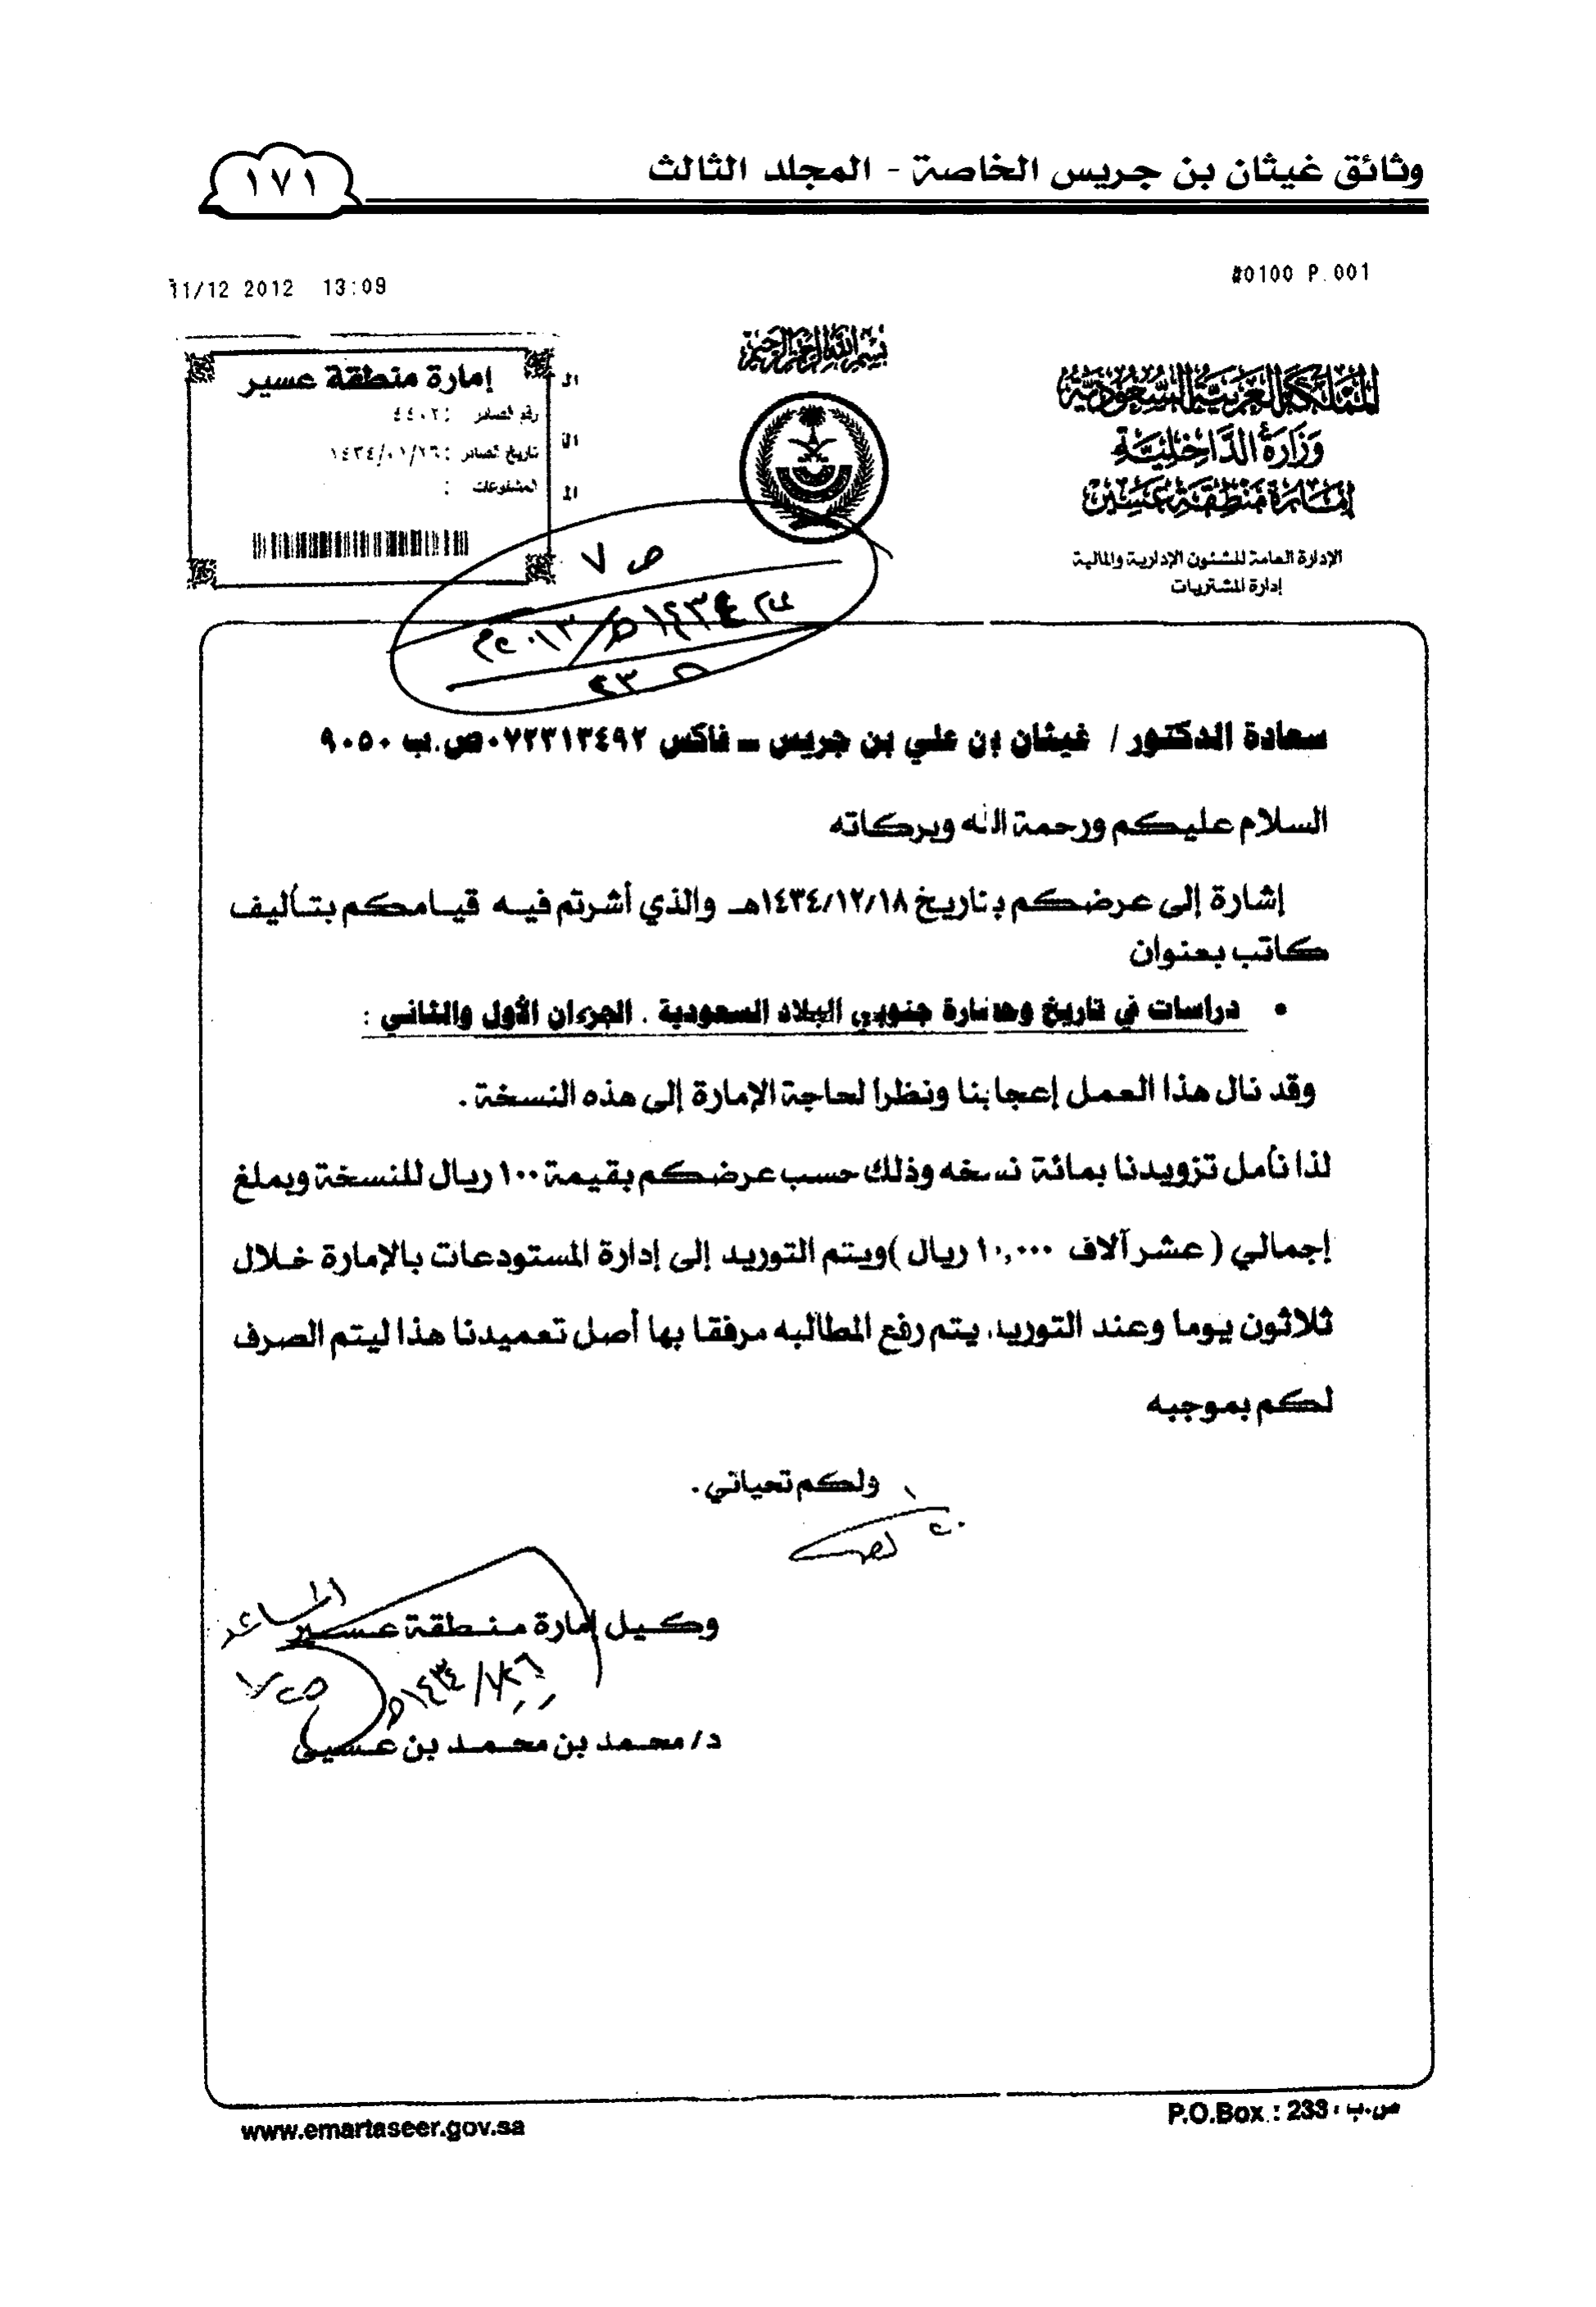 وثائق غيثان بن جريس الخاصة - المجلد الثالث
١٧١
11/12 2012 13:09
#0100 P.001
بسم الله الرحمن الرحيم
المملكة العربية السعودية
وزارة الداخلية
إمارة منطقة عسير
الإدارة العامة للشئون الإدارية والمالية
إدارة المشتريات
إمارة منطقة عسير
رقم الصادر : ٤٤٠٢
تاريخ الصادر : ١٤٣٤/٠١/٢٦
المشفوعات :
ص ٧
١٤٣٤هـ/٢٠١٣م
سعادة الدكتور / غيثان بن علي بن جريس – فاكس ٠٧٢٣١٣٤٩٢ص.ب ٩٠٥٠
السلام عليكم ورحمة الله وبركاته
إشارة إلى عرضكم بتاريخ ١٤٣٤/١٢/١٨هـ والذي أشرتم فيه قيامكم بتأليف
كاتب بعنوان
• دراسات في تاريخ وحضارة جنوبي البلاد السعودية . الجزءان الأول والثاني :
وقد نال هذا العمل إعجابنا ونظرا لحاجة الإمارة إلى هذه النسخة .
لذا نأمل تزويدنا بمائة نسخه وذلك حسب عرضكم بقيمة ١٠٠ ريال للنسخة وبملغ
إجمالي ( عشر آلاف ١٠,٠٠٠ ريال )ويتم التوريد إلى إدارة المستودعات بالإمارة خلال
ثلاثون يوما وعند التوريد، يتم رفع المطالبه مرفقا بها أصل تعميدنا هذا ليتم الصرف
لكم بموجبه
ولكم تحياتي .
وكيل إمارة منطقة عسير المساعد
١٤٣٤/١/٢٦هـ
د/ محمد بن محمد بن عسيى
www.emartaseer.gov.sa
P.O.Box : 233 : ص.ب